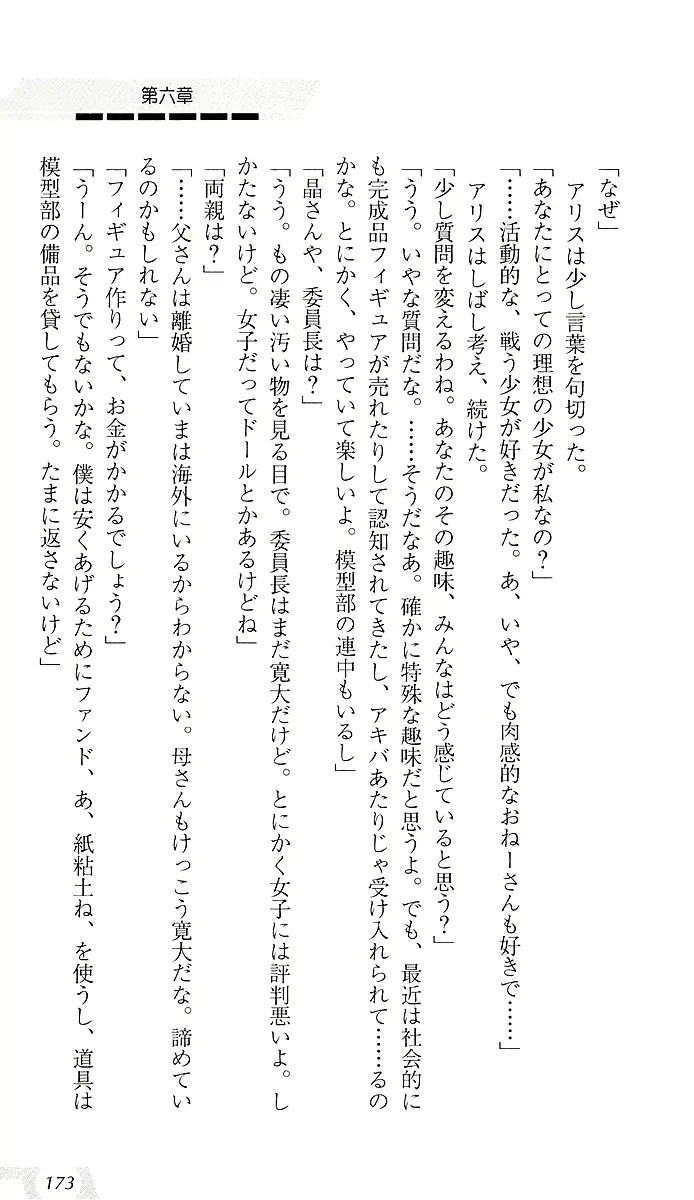 第六章
「なぜ」
アリスは少し言葉を句切った。
「あなたにとっての理想の少女が私なの？」
「……活動的な、戦う少女が好きだった。あ、いや、でも肉感的なおねーさんも好きで……」
アリスはしばし考え、続けた。
「少し質問を変えるわね。あなたのその趣味、みんなはどう感じていると思う？」
「うう。いやな質問だな。……そうだなあ。確かに特殊な趣味だと思うよ。でも、最近は社会的に
も完成品フィギュアが売れたりして認知されてきたし、アキバあたりじゃ受け入れられて……るの
かな。とにかく、やっていて楽しいよ。模型部の連中もいるし」
「晶さんや、委員長は？」
「うう。もの凄い汚い物を見る目で。委員長はまだ寛大だけど。とにかく女子には評判悪いよ。し
かたないけど。女子だってドールとかあるけどね」
「両親は？」
「……父さんは離婚していまは海外にいるからわからない。母さんもけっこう寛大だな。諦めてい
るのかもしれない」
「フィギュア作りって、お金がかかるでしょう？」
「うーん。そうでもないかな。僕は安くあげるためにファンド、あ、紙粘土ね、を使うし、道具は
模型部の備品を貸してもらう。たまに返さないけど」
173